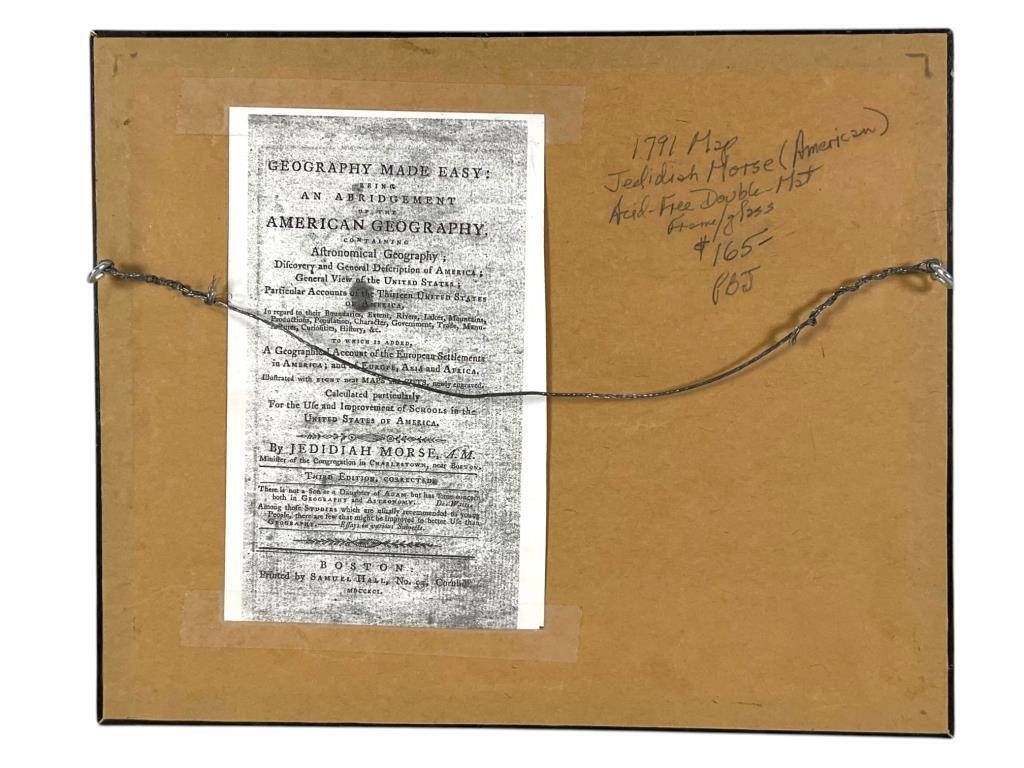 GEOGRAPHY MADE EASY:
BEING
AN ABRIDGEMENT
OF THE
AMERICAN GEOGRAPHY,
CONTAINING
Aſtronomical Geography;
Diſcovery and General Deſcription of AMERICA;
General View of the UNITED STATES;
Particular Accounts of the Thirteen UNITED STATES
OF AMERICA,
In regard to their Boundaries, Extent, Rivers, Lakes, Mountains,
Productions, Population, Character, Government, Trade, Manu-
factures, Curioſities, Hiſtory, &c.
TO WHICH IS ADDED,
A Geographical Account of the European Settlements
in AMERICA; and of EUROPE, ASIA and AFRICA.
Illuſtrated with EIGHT neat MAPS and CUTS, newly engraved.
Calculated particularly
For the Uſe and Improvement of SCHOOLS in the
UNITED STATES OF AMERICA.
By JEDIDIAH MORSE, A.M.
Miniſter of the Congregation in CHARLESTOWN, near BOSTON.
THIRD EDITION, CORRECTED.
There is not a Son or a Daughter of ADAM but has ſome concern
both in GEOGRAPHY and ASTRONOMY. Dr. Watts.
Among thoſe STUDIES which are uſually recommended to young
People, there are few that might be improved to better Uſe than
GEOGRAPHY. Eſſays on various Subjects.
BOSTON:
Printed by SAMUEL HALL, No. 53, Cornhill.
MDCCXCI.
1791 Map
Jedidiah Morse (American)
Acid-Free Double-Mat
Frame/glass
$165-
PBJ